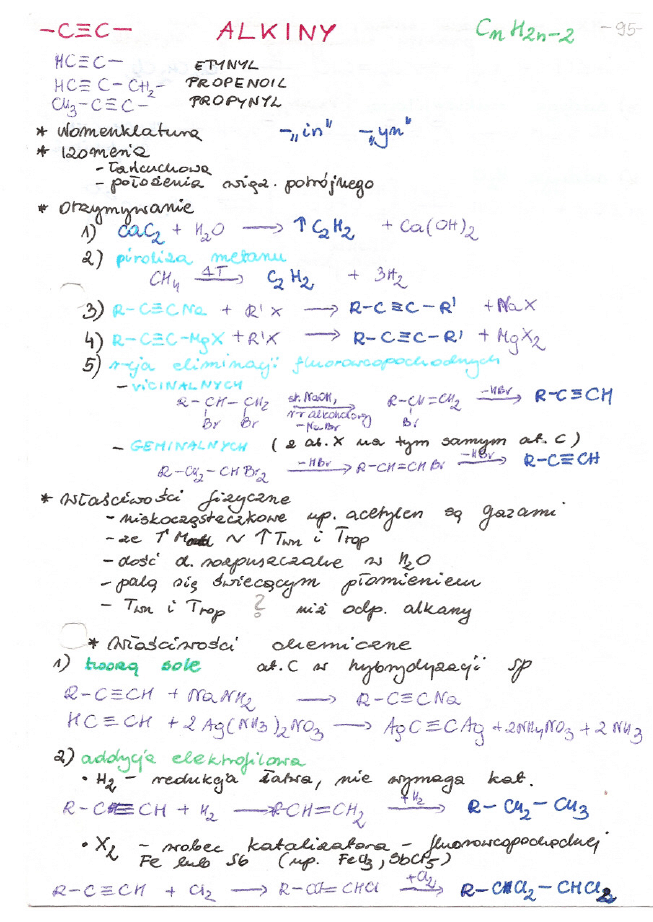 -C≡C- ALKINY CnH2n-2 -95-
HC≡C- ETYNYL
HC≡C-CH2- PROPENOIL
CH3-C≡C- PROPYNYL
* Nomenklatura -„in" -„yn"
* Izomeria
- łańcuchowa
- położenia wiąz. potrójnego
* Otrzymywanie
1) CaC2 + H2O → ↑C2H2 + Ca(OH)2
2) piroliza metanu
CH4 —ΔT→ C2H2 + 3H2
3) R-C≡CNa + R'X → R-C≡C-R' + NaX
4) R-C≡C-MgX + R'X → R-C≡C-R' + MgX2
5) r-cja eliminacji fluorowcopochodnych
- VICINALNYCH
R-CH-CH2 st. NaOH, R-CH=CH2 —-HBr→ R-C≡CH
Br Br r-r alkoholowy Br
-NaBr
- GEMINALNYCH (2 at. X na tym samym at. C)
R-CH2-CHBr2 —-HBr→ R-CH=CHBr —-HBr→ R-C≡CH
* Właściwości fizyczne
- niskocząsteczkowe np. acetylen są gazami
- ze ↑ ~ ↑ Twn i Ttop
- dość d. rozpuszczalne w H2O
- palą się świecącym płomieniem
- Twn i Ttop ? niż odp. alkany
* Właściwości chemiczne
1) tworzą sole at. C w hybrydyzacji sp
R-C≡CH + NaNH2 → R-C≡CNa
HC≡CH + 2Ag(NH3)2NO3 → AgC≡CAg + 2NH4NO3 + 2NH3
2) addycja elektrofilowa
• H2 - redukcja łatwa, nie wymaga kat.
R-C≡CH + H2 → RCH=CH2 —+H2→ R-CH2-CH3
• X2 - wobec katalizatora - fluorowcopochodnej
Fe lub Sb (np. FeCl3, SbCl5)
R-C≡CH + Cl2 → R-CCl=CHCl —+Cl2→ R-CCl2-CHCl2